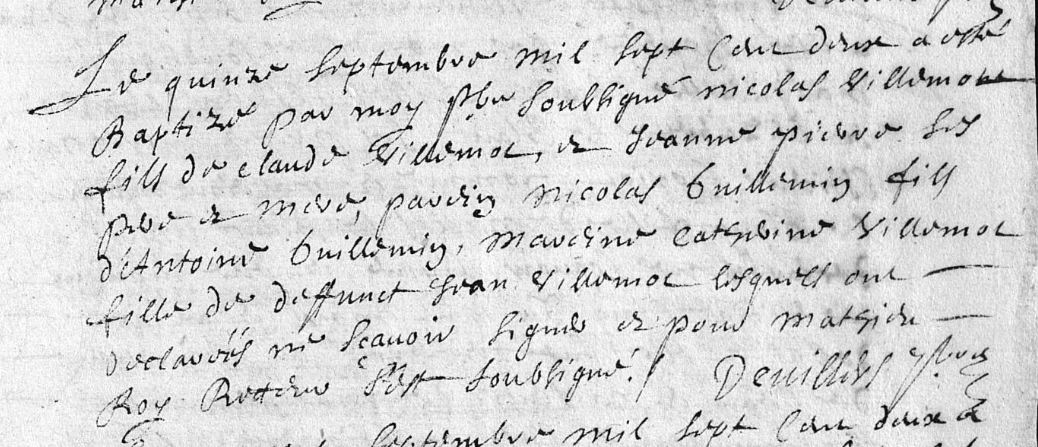 Le quinze septembre mil sept Cent deux a esté
Baptizé par moy pbre soubsigné nicolas Villemot
fils de claude Villemot, et Jeanne pierre ses
pere et mere, parein nicolas Guillemin fils
d'Antoine Guillemin, mareine Catherine Villemot
fille de deffunct Jean Villemot lesquels ont
declarées ne sçavoir signer et pour mathieu
Roy s'est soubsigné! Devillers
septembre mil sept Cent deux a